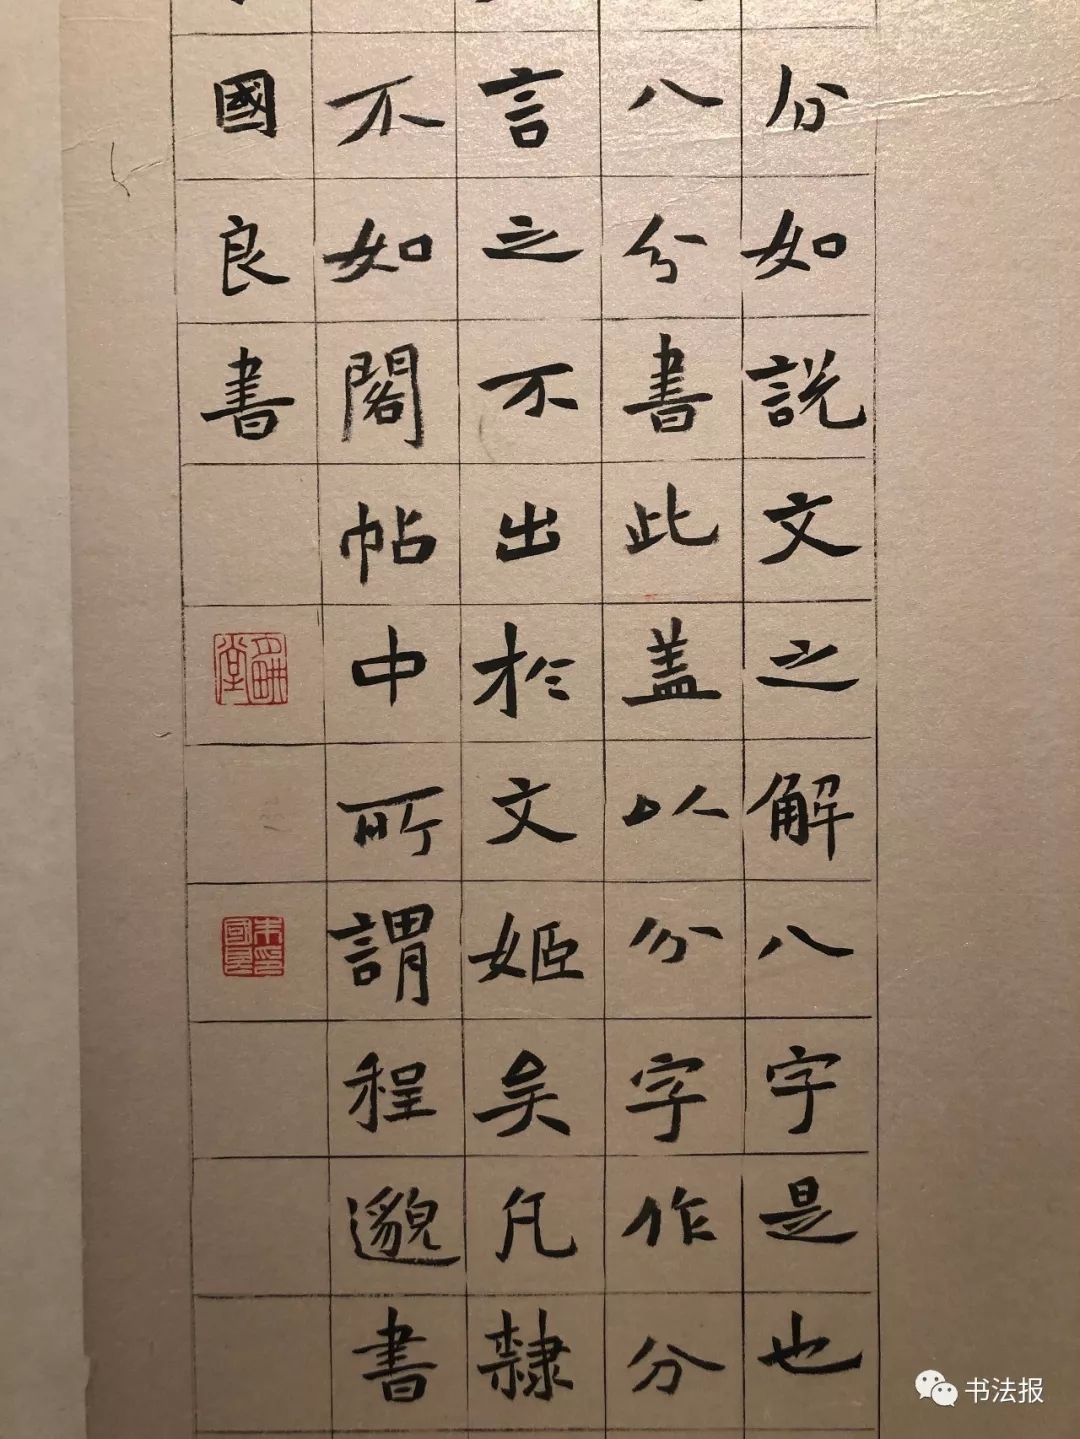 分如説文之解八字是也
八分書此蓋以分字作分
言之不出於文姬矣凡隸
不如閣帖中所謂程邈書
國良書
書法报